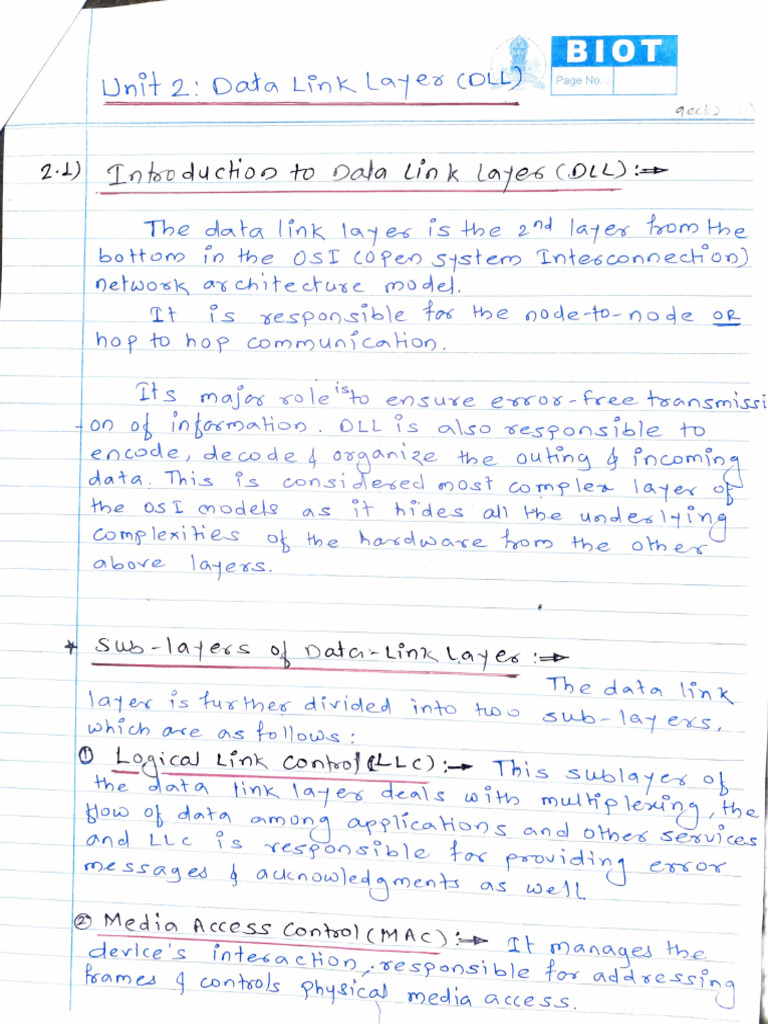 BIOT
Page No. :
Unit 2: Data Link Layer (DLL)
2.1) Introduction to Data Link Layer (DLL) :⇒
The data link layer is the 2nd layer from the
bottom in the OSI (Open System Interconnection)
network architecture model.
It is responsible for the node-to-node OR
hop to hop communication.
Its major role is to ensure error-free transmissi
-on of information. DLL is also responsible to
encode, decode & organize the outing & incoming
data. This is considered most complex layer of
the OSI models as it hides all the underlying
complexities of the hardware from the other
above layers.
* Sub-layers of Data-Link Layer :⇒
The data link
layer is further divided into two sub-layers,
which are as follows :
① Logical Link Control (LLC) :→ This sublayer of
the data link layer deals with multiplexing, the
flow of data among applications and other services
and LLC is responsible for providing error
messages & acknowledgments as well.
② Media Access Control (MAC) :→ It manages the
device's interaction, responsible for addressing
frames & controls physical media access.